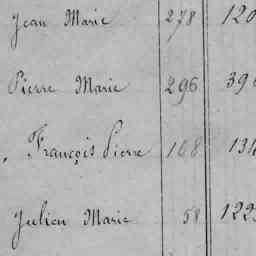 Jean Marie 278 120
Pierre Marie 296 39
François Pierre 168 134
Julien Marie 58 122